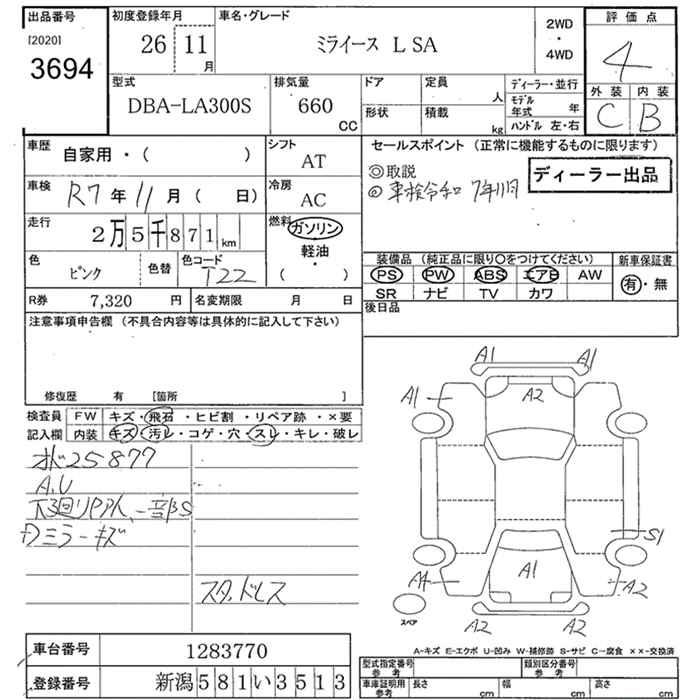 出品番号
[2020]
3694
初度登録年月
26 11月
車名・グレード
ミライース L SA
2WD
・
4WD
評価点
4
外装 内装
C B
型式
DBA-LA300S
排気量
660
CC
ドア
形状
定員
人
積載
kg
ディーラー・並行
モデル年式 年
ハンドル 左・右
車歴
自家用・( )
シフト
AT
車検 R7年11月( 日)
冷房
AC
走行
2万5千871km
燃料
ガソリン
軽油
・
( )
色
ピンク
色替
色コード
T22
R券 7,320 円
名変期限 月 日
セールスポイント (正常に機能するものに限ります)
◎取説
◎車検令和7年11月
ディーラー出品
装備品 (純正品に限り○をつけてください)
PS PW ABS エアB AW
SR ナビ TV カワ
新車保証書
有・無
後日品
注意事項申告欄 (不具合内容等は具体的に記入して下さい)
修復歴 有 [箇所 ]
検査員
記入欄
FW キズ・飛石・ヒビ割・リペア跡・×要
内装 キズ・汚レ・コゲ・穴・スレ・キレ・破レ
オド25877
A,U
下廻リ
一部S
ミラーキズ
スタッドレス
A1 A1
A1 A2
S1
A4 A1 A2
A2 A2
スペア
A-キズ E-エクボ U-凹み W-補修跡 S-サビ C-腐食 ××-交換済
車台番号 1283770
登録番号 新潟581い3513
型式指定番号
参考
類別区分番号
参考
車庫証明用
参考
長さ cm
幅 cm
高さ cm